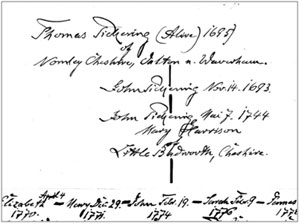 Thomas Pickering (Alive) 1685
of
Cheshire, Dalton n. Waverham.
John Pickering Nov. 14. 1693.
John Pickering Mai 7. 1744
Mary Harrison
Little Budworth, Cheshire.
Elizabeth April 4 1770. Mary Dic. 29. John Feb. 19. 1774 Sarah Feb. 9 1776